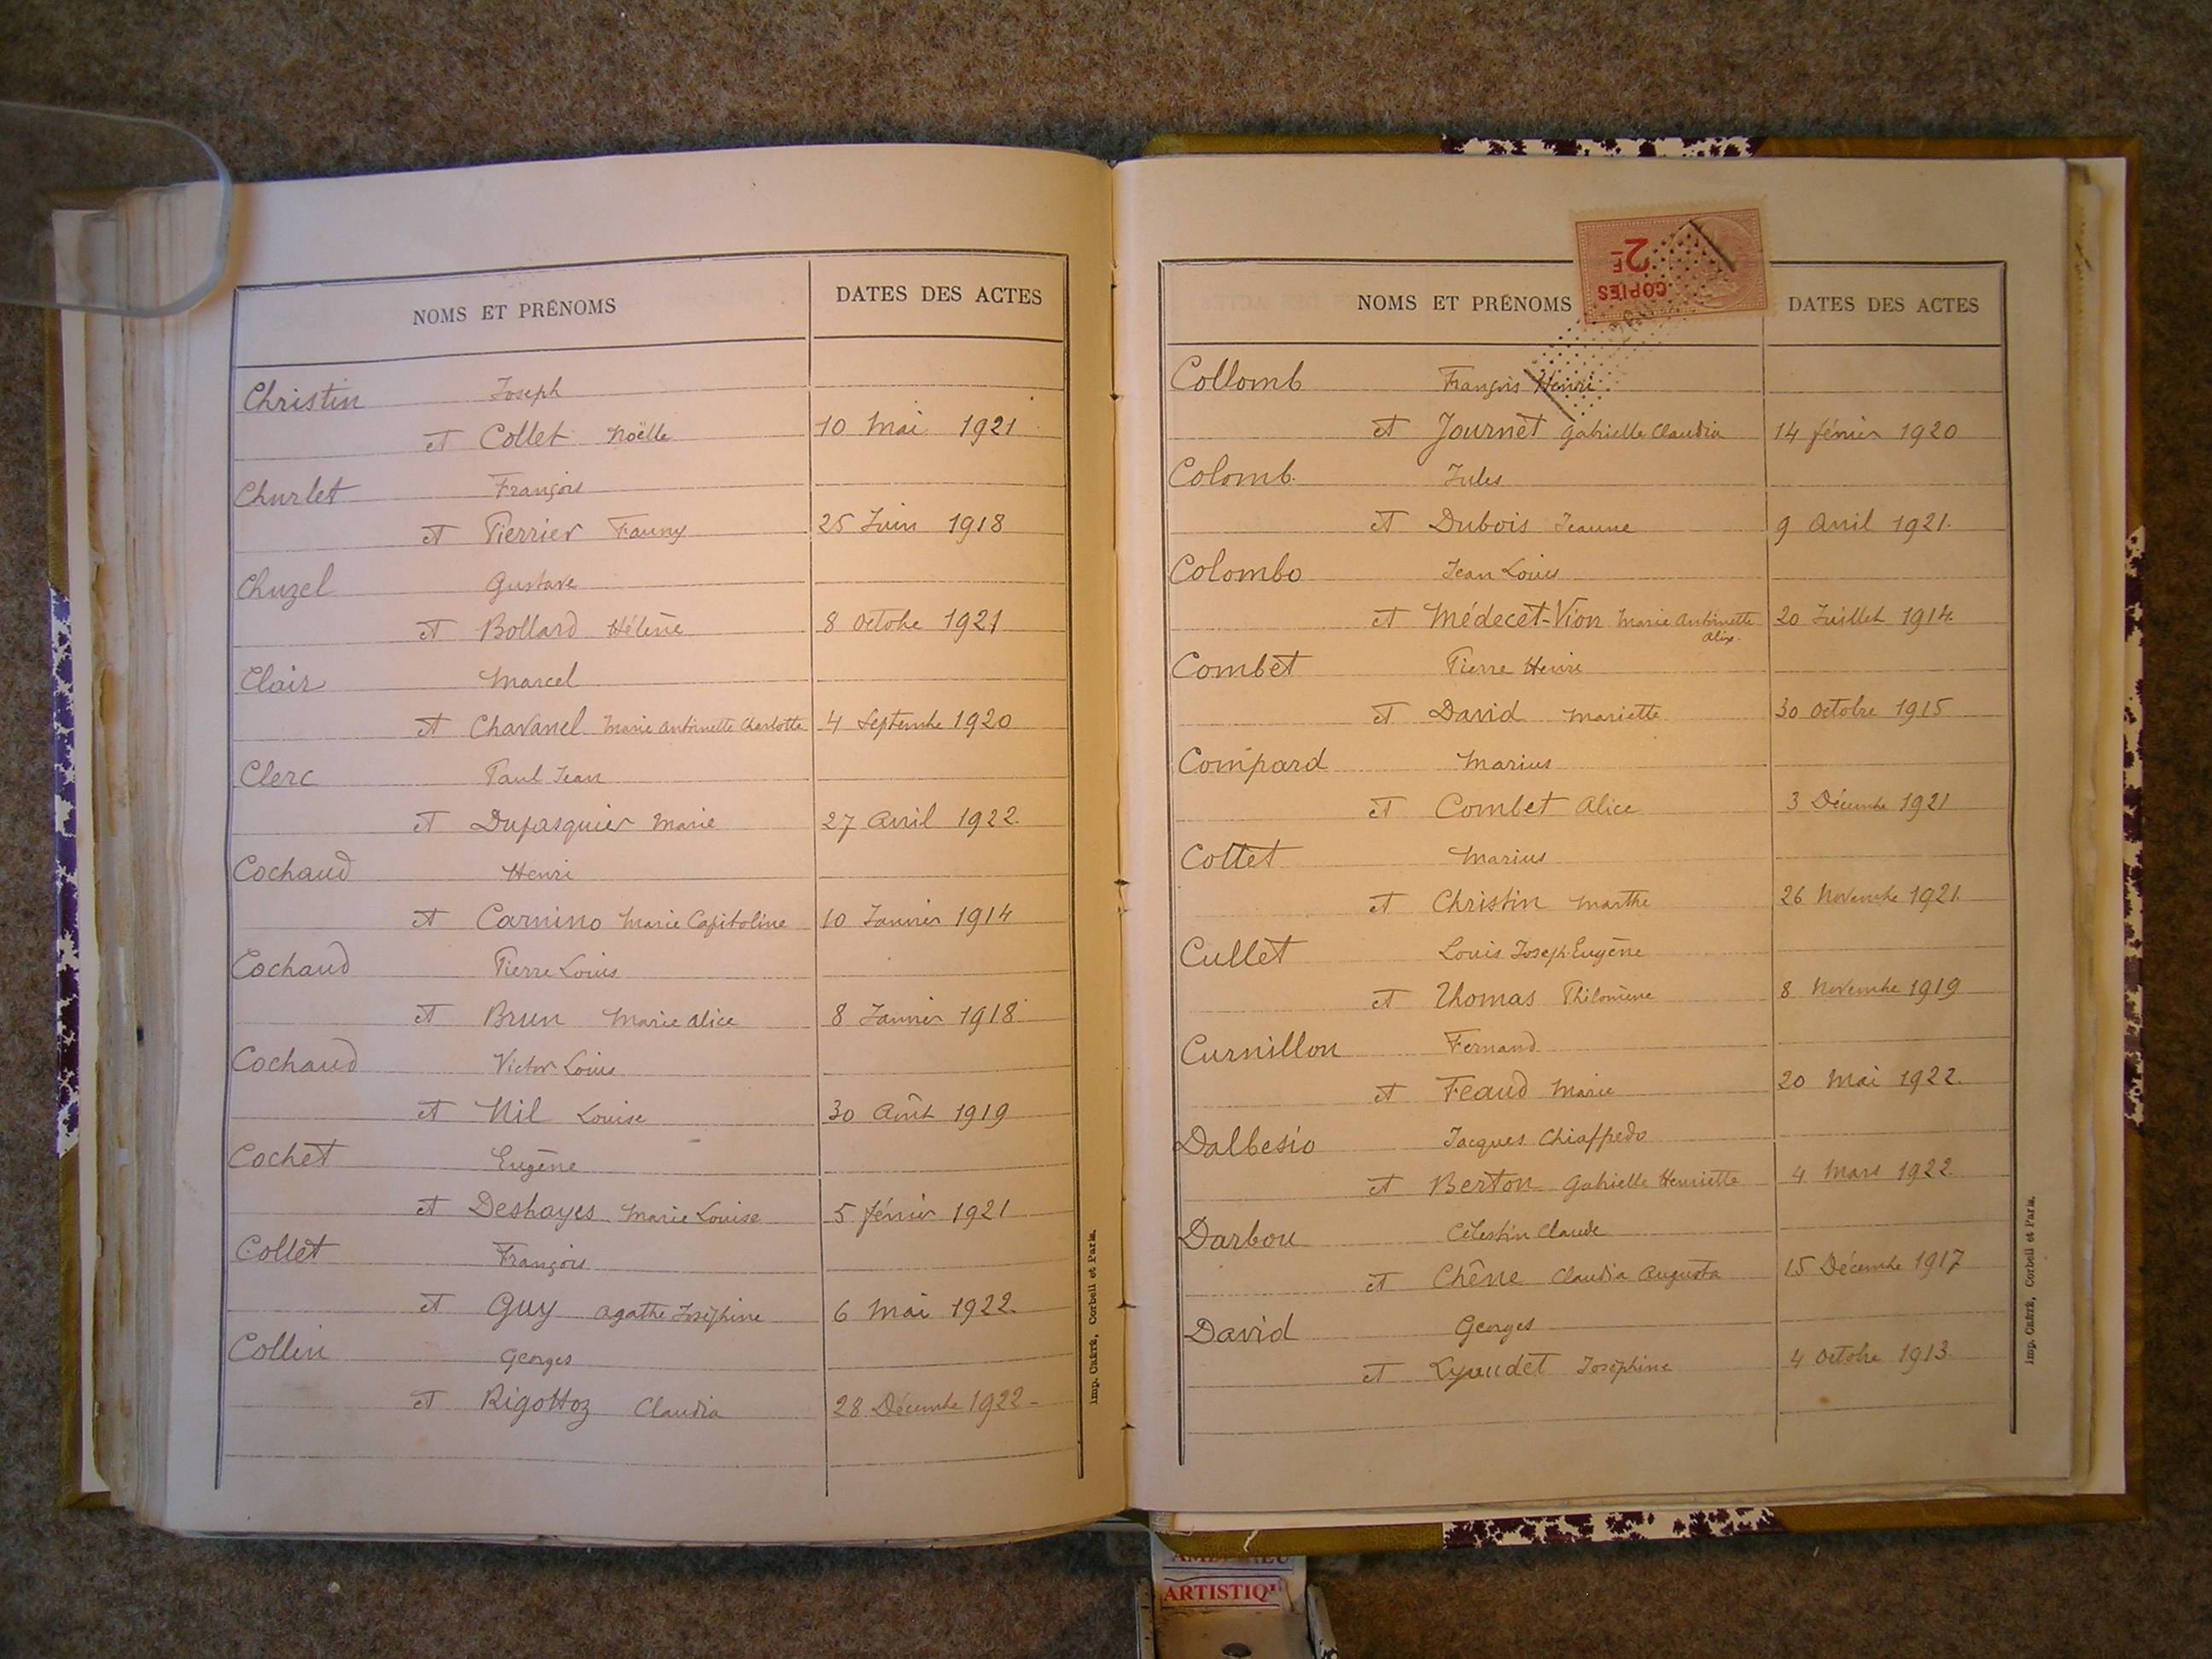 NOMS ET PRÉNOMS DATES DES ACTES
Christin Joseph
et Collet Noëlle 10 Mai 1921
Churlet François
et Pierrier Fanny 25 Juin 1918
Chuzel Gustave
et Bollard Hélène 8 Octobre 1921
Clair Marcel
et Chavanel Marie Antoinette Charlotte 4 Septembre 1920
Clerc Paul Jean
et Dupasquier Marie 27 Avril 1922
Cochaud Henri
et Carnino Marie Capitoline 10 Janvier 1914
Cochaud Pierre Louis
et Brun Marie Alice 8 Janvier 1918
Cochaud Victor Louis
et Nil Louise 30 Août 1919
Cochet Eugène
et Deshayes Marie Louise 5 février 1921
Collet François
et Guy Agathe Joséphine 6 Mai 1922
Collin Georges
et Rigottoz Claudia 28 Décembre 1922
Imp. Crété, Corbeil et Paris.
2F
COPIES
NOMS ET PRÉNOMS DATES DES ACTES
Collomb François Henri
et Journet Gabrielle Claudia 14 février 1920
Colomb Jules
et Dubois Jeanne 9 Avril 1921
Colombo Jean Louis
et Médecet-Vion Marie Antoinette 20 Juillet 1914
Alix
Combet Pierre Henri
et David Mariette 30 Octobre 1915
Compard Marius
et Combet Alice 3 Décembre 1921
Cottet Marius
et Christin Marthe 26 Novembre 1921
Cullet Louis Joseph Eugène
et Thomas Philomène 8 Novembre 1919
Curnillon Fernand
et Feaud Marie 20 Mai 1922
Dalbesio Jacques Chiaffredo
et Berton Gabrielle Henriette 4 Mars 1922
Darbou Célestin Claude
et Chêne Claudia Augusta 15 Décembre 1917
David Georges
et Lyaudet Joséphine 4 Octobre 1913
Imp. Crété, Corbeil et Paris.